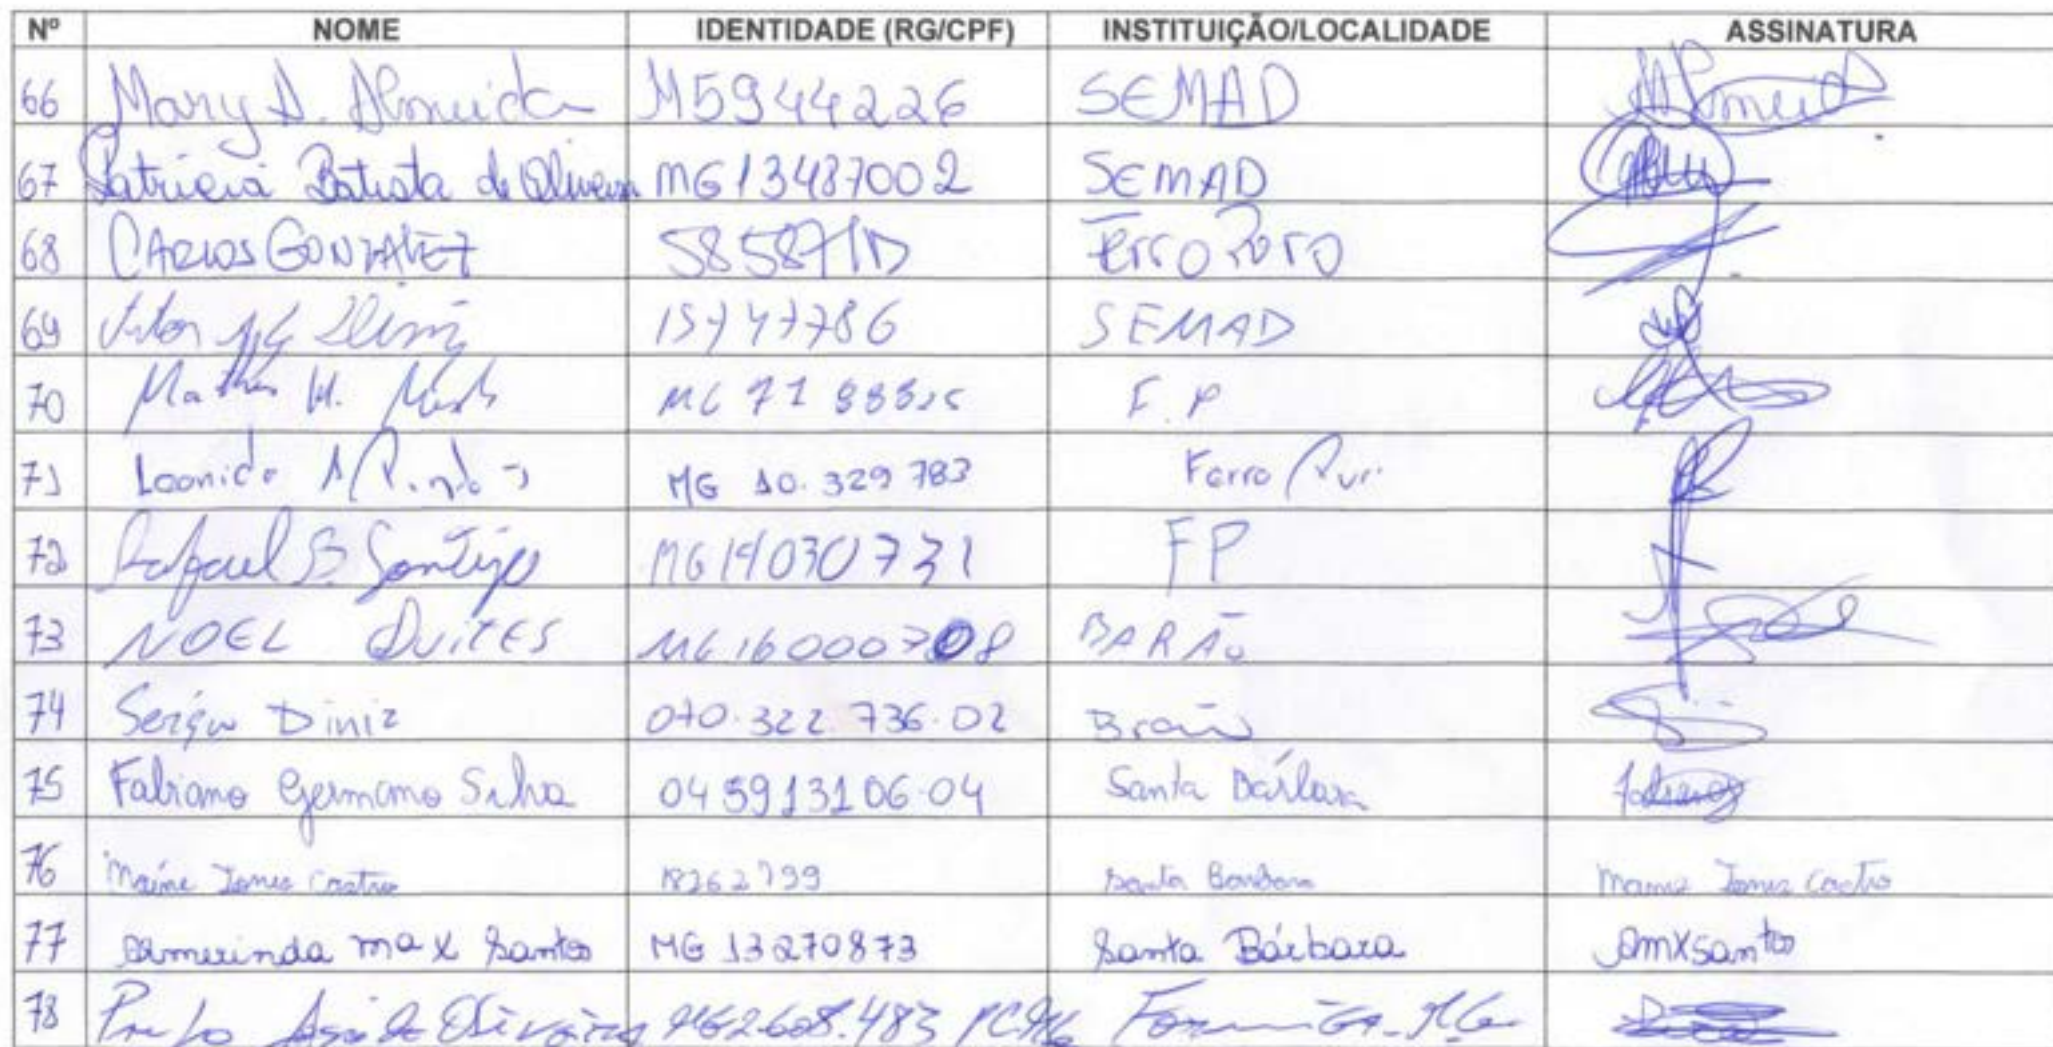 Nº NOME IDENTIDADE (RG/CPF) INSTITUIÇÃO/LOCALIDADE ASSINATURA
66 Mary A. Almeida M5944226 SEMAD Almeida
67 Patricia Batista de Oliveira MG13487002 SEMAD
68 CARLOS GONZALEZ 58587/D Ferro Puro
69 15747786 SEMAD
70 F.P
71 MG 10.329 783 Ferro Puro
72 Rafael B Santiago MG14030731 FP
73 NOEL QUITES MG16000708 BARÃO
74 Sergio Diniz 070.322.736.02
75 Fabiano Germano Silva 045913106-04 Santa Bárbara
76 Castro 18262799 Santa Barbara Castro
77 Almerinda max Santos MG 13270873 Santa Bárbara AmxSantos
78 Oliveira MG2608.483 Formiga-MG